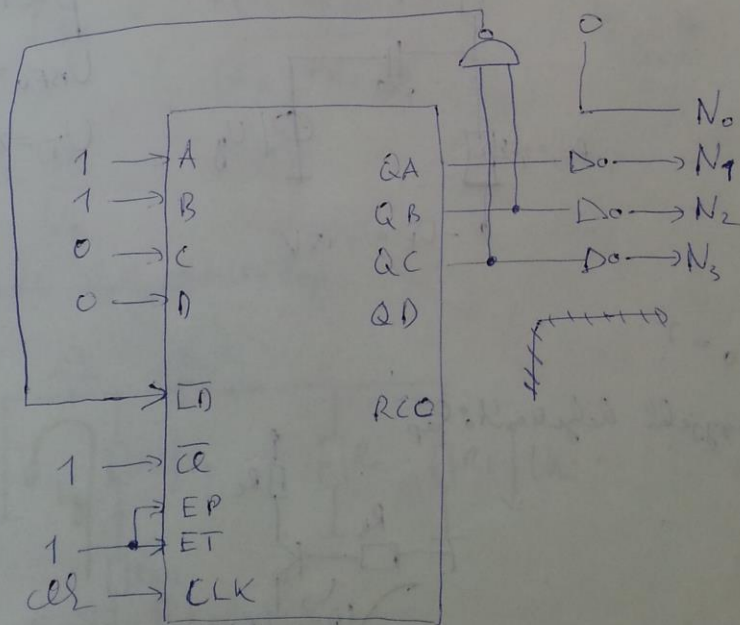 0
N₀
1 A QA N₁
1 B QB N₂
0 C QC N₃
0 D QD
L̅D̅ RCO
1 C̅l̅
EP
1 E̅T̅
CLK